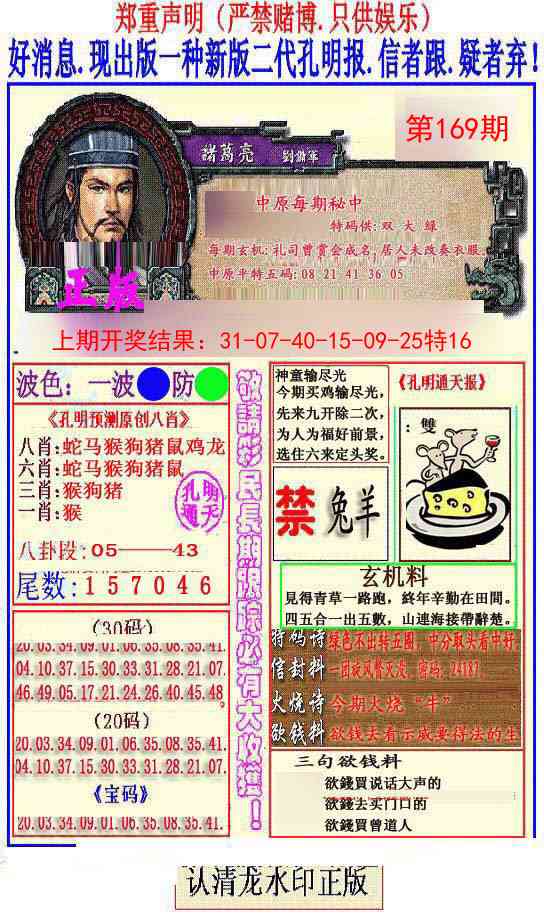 郑重声明（严禁赌博.只供娱乐）
好消息.现出版一种新版二代孔明报.信者跟.疑者弃!
第169期
諸葛亮 劉備軍
中原每期秘中
特码供:双 大 緑
每期玄机:礼司曾赏会成名,居人未改奏衣服.
中原平特五码:08 21 41 36 05
正版
上期开奖结果：31-07-40-15-09-25特16
波色：一波 防
《孔明预测原创八肖》
八肖:蛇马猴狗猪鼠鸡龙
六肖:蛇马猴狗猪鼠
三肖:猴狗猪
一肖:猴
孔明
通天
八卦段:05——43
尾数:157046
(30码)
20.03.34.09.01.06.35.08.35.41.
04.10.37.15.30.33.31.28.21.07.
46.49.05.17.21.24.26.40.45.48。
(20码)
20.03.34.09.01.06.35.08.35.41.
04.10.37.15.30.33.31.28.21.07.
《宝码》
20.03.34.09.01.06.35.08.35.41.
敬請彩民長期跟踪必有大收獲！
神童输尽光
今期买鸡输尽光，
先来九开除二次，
为人为福好前景，
选住六来定头奖。
《孔明通天报》
：雙
禁 兔羊
玄机料
見得青草一路跑，終年辛勤在田間。
四五合一出五數，山連海接帶辭楚。
特码诗 绿色不出转五圈,中分取头看中好.
信封料 一团旋风臀又发.密码:24187.
火烧诗 今期火烧“牛”
欲钱料 欲钱去看示威要得法的生
三句欲钱料
欲錢買说话大声的
欲錢去买门口的
欲錢買曾道人
认清龙水印正版